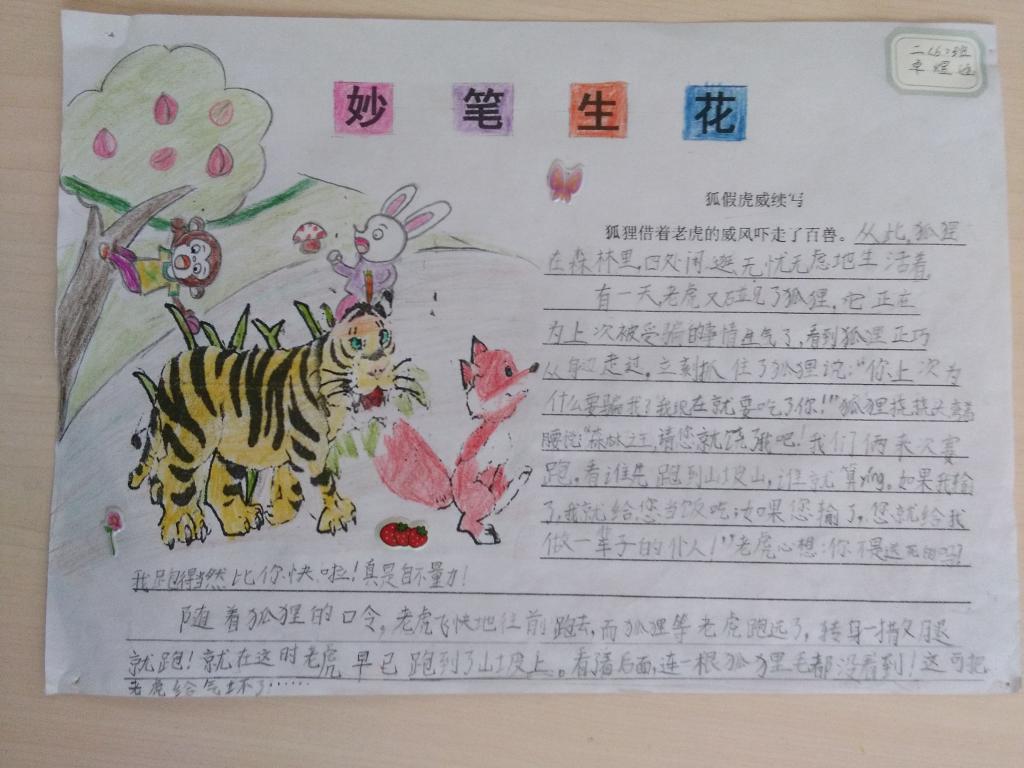 妙笔生花
二(6)班
狐假虎威续写
狐狸借着老虎的威风吓走了百兽。从此,狐狸
在森林里,四处闲逛无忧无虑地生活着
有一天,老虎又碰见了狐狸,它正在
为上次被受骗的事情生气了,看到狐狸正巧
从身边走过,立刻抓住了狐狸说:“你上次为
什么要骗我?我现在就要吃了你!”狐狸挠挠头弯着
腰说“森林之王,请您就饶我吧!我们俩来次赛
跑,看谁先跑到山坡山,谁就算ying。如果我输
了,我就给您当饭吃;如果您输了,您就给我
做一辈子的仆人!”老虎心想:你不是送死的吗!
我跑得当然比你快啦!真是自不量力!
随着狐狸的口令,老虎飞快地往前跑去,而狐狸等老虎跑远了,转身一撒腿
就跑!就在这时老虎早已跑到了山坡上。看看后面,连一根狐狸毛都没看到!这可把
老虎给气坏了……